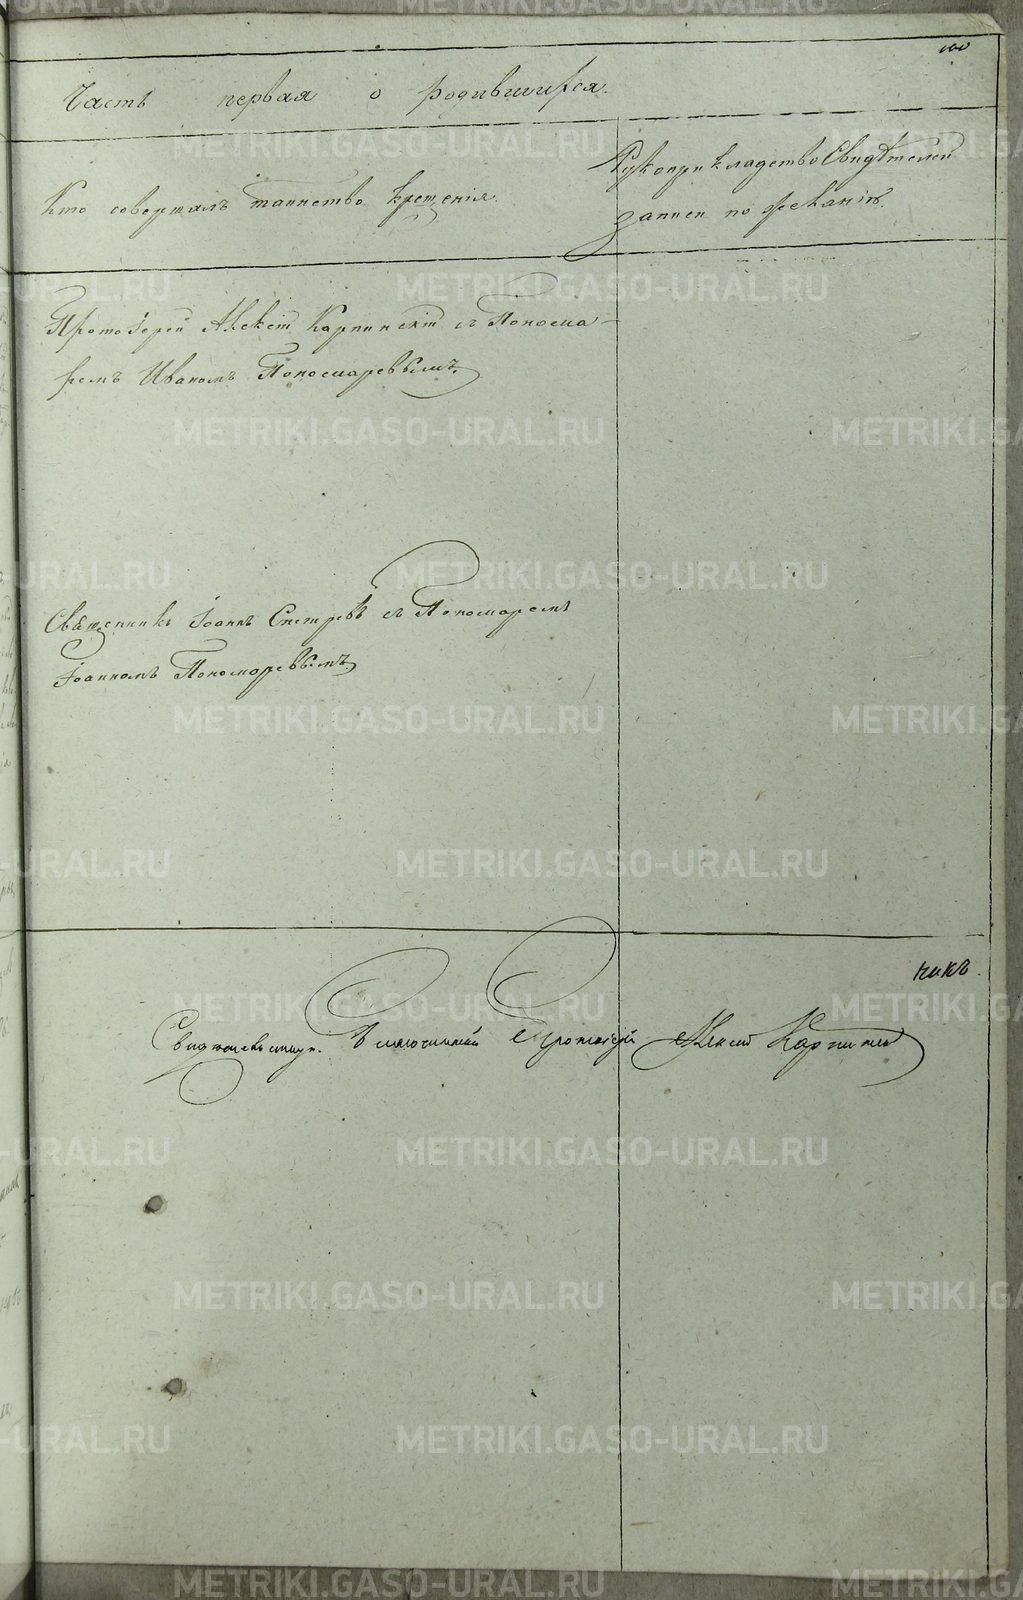 100
Часть первая о родившихся.
Кто совершалъ таинство крещенія.
Рукоприкладство Свидѣтелей
записи по желанію.
ПротоІерей Алексій Карпинскій съ Понома-
ремъ Иваномъ Пономаревымъ.
Священникъ Іоаннъ съ Пономаремъ
Іоанномъ Пономаревымъ.
никъ.
Протоіерей Алексій Карпинс
METRIKI.GASO-URAL.RU